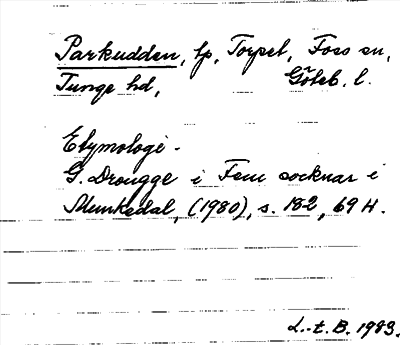 Parkudden, lp, Torpet, Foss sn,
Tunge hd, Göteb. l.
Etymologi.
G. Drougge i Fem socknar i
Munkedal, (1980), s. 182, 69 H.
L.t.B. 1983.